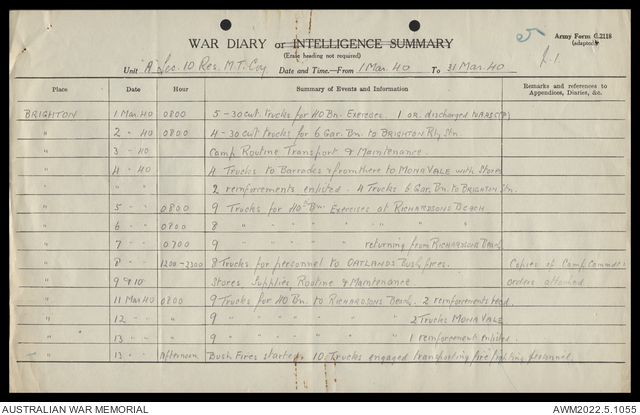 5
Army Form C.2118
(adapted)
WAR DIARY or INTELLIGENCE SUMMARY
(Erase heading not required)
Unit "A" Sec. 10 Res. M.T. Coy Date and Time.—From 1 Mar. 40 To 31 Mar. 40
Place Date Hour Summary of Events and Information Remarks and references to Appendices, Diaries, &c.
BRIGHTON 1 Mar. 40 0800 5 - 30 cwt. trucks for 40 Bn. Exercises. 1 O.R. discharged to
" 2 " 40 0800 4 - 30 cwt. trucks for 6 Gar. Bn. to BRIGHTON Rly Stn.
" 3 " 40 Camp Routine Transport & Maintenance.
" 4 " 40 4 Trucks to Barracks & from there to MONA VALE with Stores
" " " 2 reinforcements enlisted. 4 Trucks 6 Gar. Bn. to BRIGHTON Stn.
" 5 " " 0800 9 Trucks for 40th Bn. Exercises at RICHARDSONS BEACH
" 6 " " 0800 8 " " " " " " "
" 7 " " 0700 9 " " " " returning from RICHARDSONS BEACH
" 8 " " 1200-2300 8 Trucks for personnel to OATLANDS Bush fires. Copies of Camp Commdts
" 9 & 10 Stores, Supplies, Routine & Maintenance. orders attached
" 11 Mar 40 0800 9 Trucks for 40 Bn. to RICHARDSONS Beach. 2 reinforcements
" 12 " " 9 " " " " " " 2 Trucks MONA VALE
" 13 " " 9 " " " " " " 1 reinforcement enlisted.
" 13 " " Afternoon Bush Fires started 10 Trucks engaged transporting fire fighting personnel.
AUSTRALIAN WAR MEMORIAL
AWM2022.5.1055